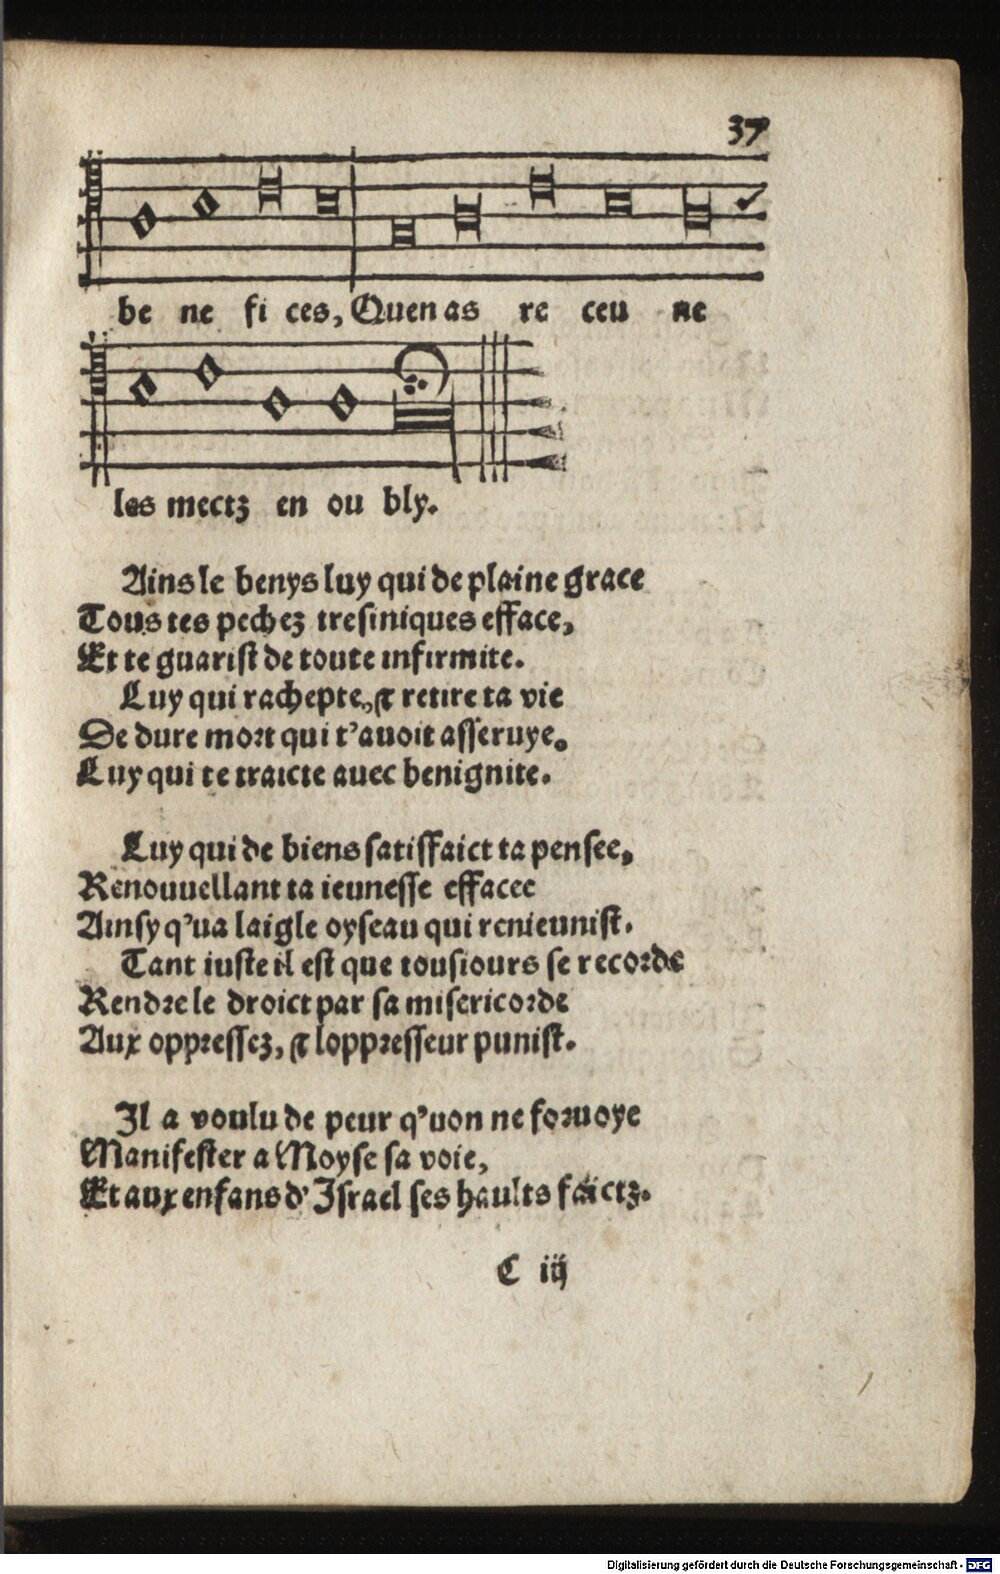 37
be ne fi ces, Quen as re ceu ne
les mectz en ou bly.
Ains le benys luy qui de plaine grace
Tous tes pechez tresiniques efface,
Et te guarist de toute infirmite.
Luy qui rachepte, & retire ta vie
De dure mort qui t'auoit asseruye.
Luy qui te traicte auec benignite.
Luy qui de biens satiffaict ta pensee,
Renouuellant ta ieunesse effacee
Ainsy q'ua laigle oyseau qui renieunist.
Tant iuste il est que tousiours se recorde
Rendre le droict par sa misericorde
Aux oppressez, & loppresseur punist.
Il a voulu de peur q'uon ne foruoye
Manifester a Moyse sa voie,
Et aux enfans d'Israel ses haults faictz.
C iij
Digitalisierung gefördert durch die Deutsche Forschungsgemeinschaft - DFG